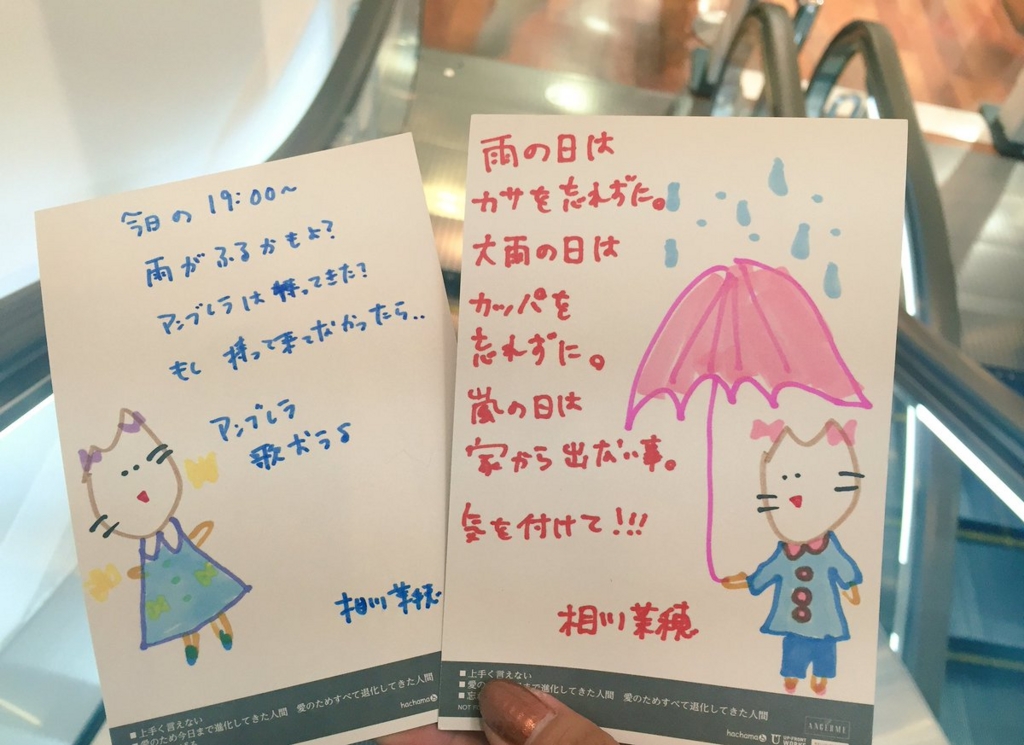 今日の 19:00~
雨がふるかもよ?
アンブレラは 持ってきた?
もし 持って来てなかったら..
アンブレラ
歌おう♪
相川茉穂
■上手く言えない
■愛のため今日まで進化してきた人間 愛のためすべて退化してきた人間
hachama
雨の日は
カサを忘れずに。
大雨の日は
カッパを
忘れずに。
嵐の日は
家から出ない事。
気を付けて!!!
相川茉穂
■上手く言えない
■愛の まで進化してきた人間 愛のためすべて退化してきた人間
hachama
UP-FRONT WORKS
ANGERME